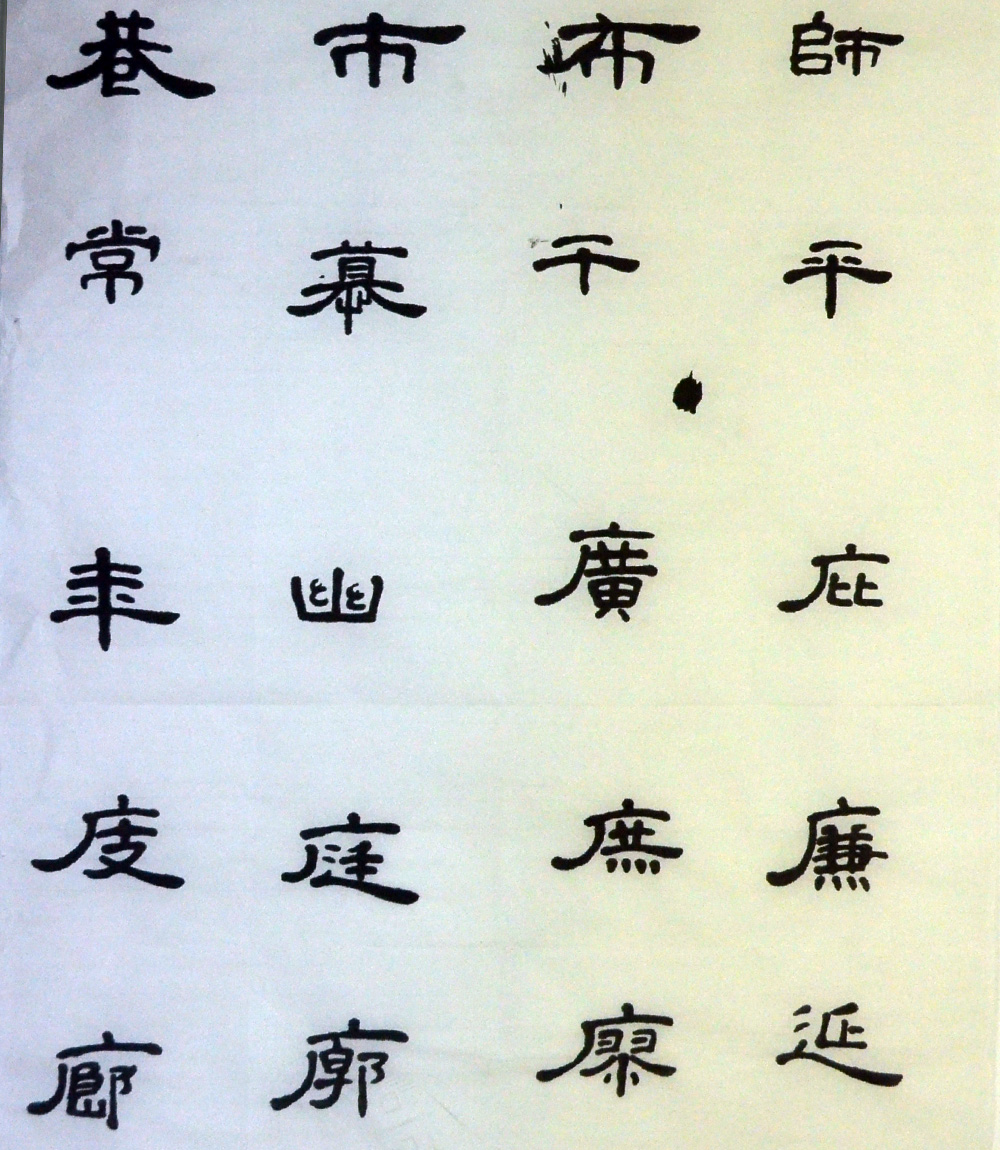 巷 市 布 師
常 幕 干 平
年 幽 廣 庇
度 庭 庶 廉
廊 廓 廖 延